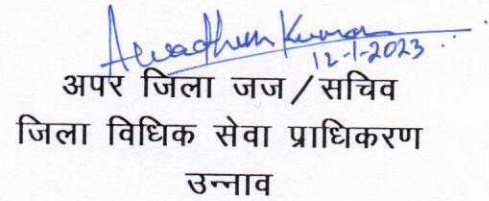 Awadhesh Kumar
12-1-2023
अपर जिला जज / सचिव
जिला विधिक सेवा प्राधिकरण
उन्नाव